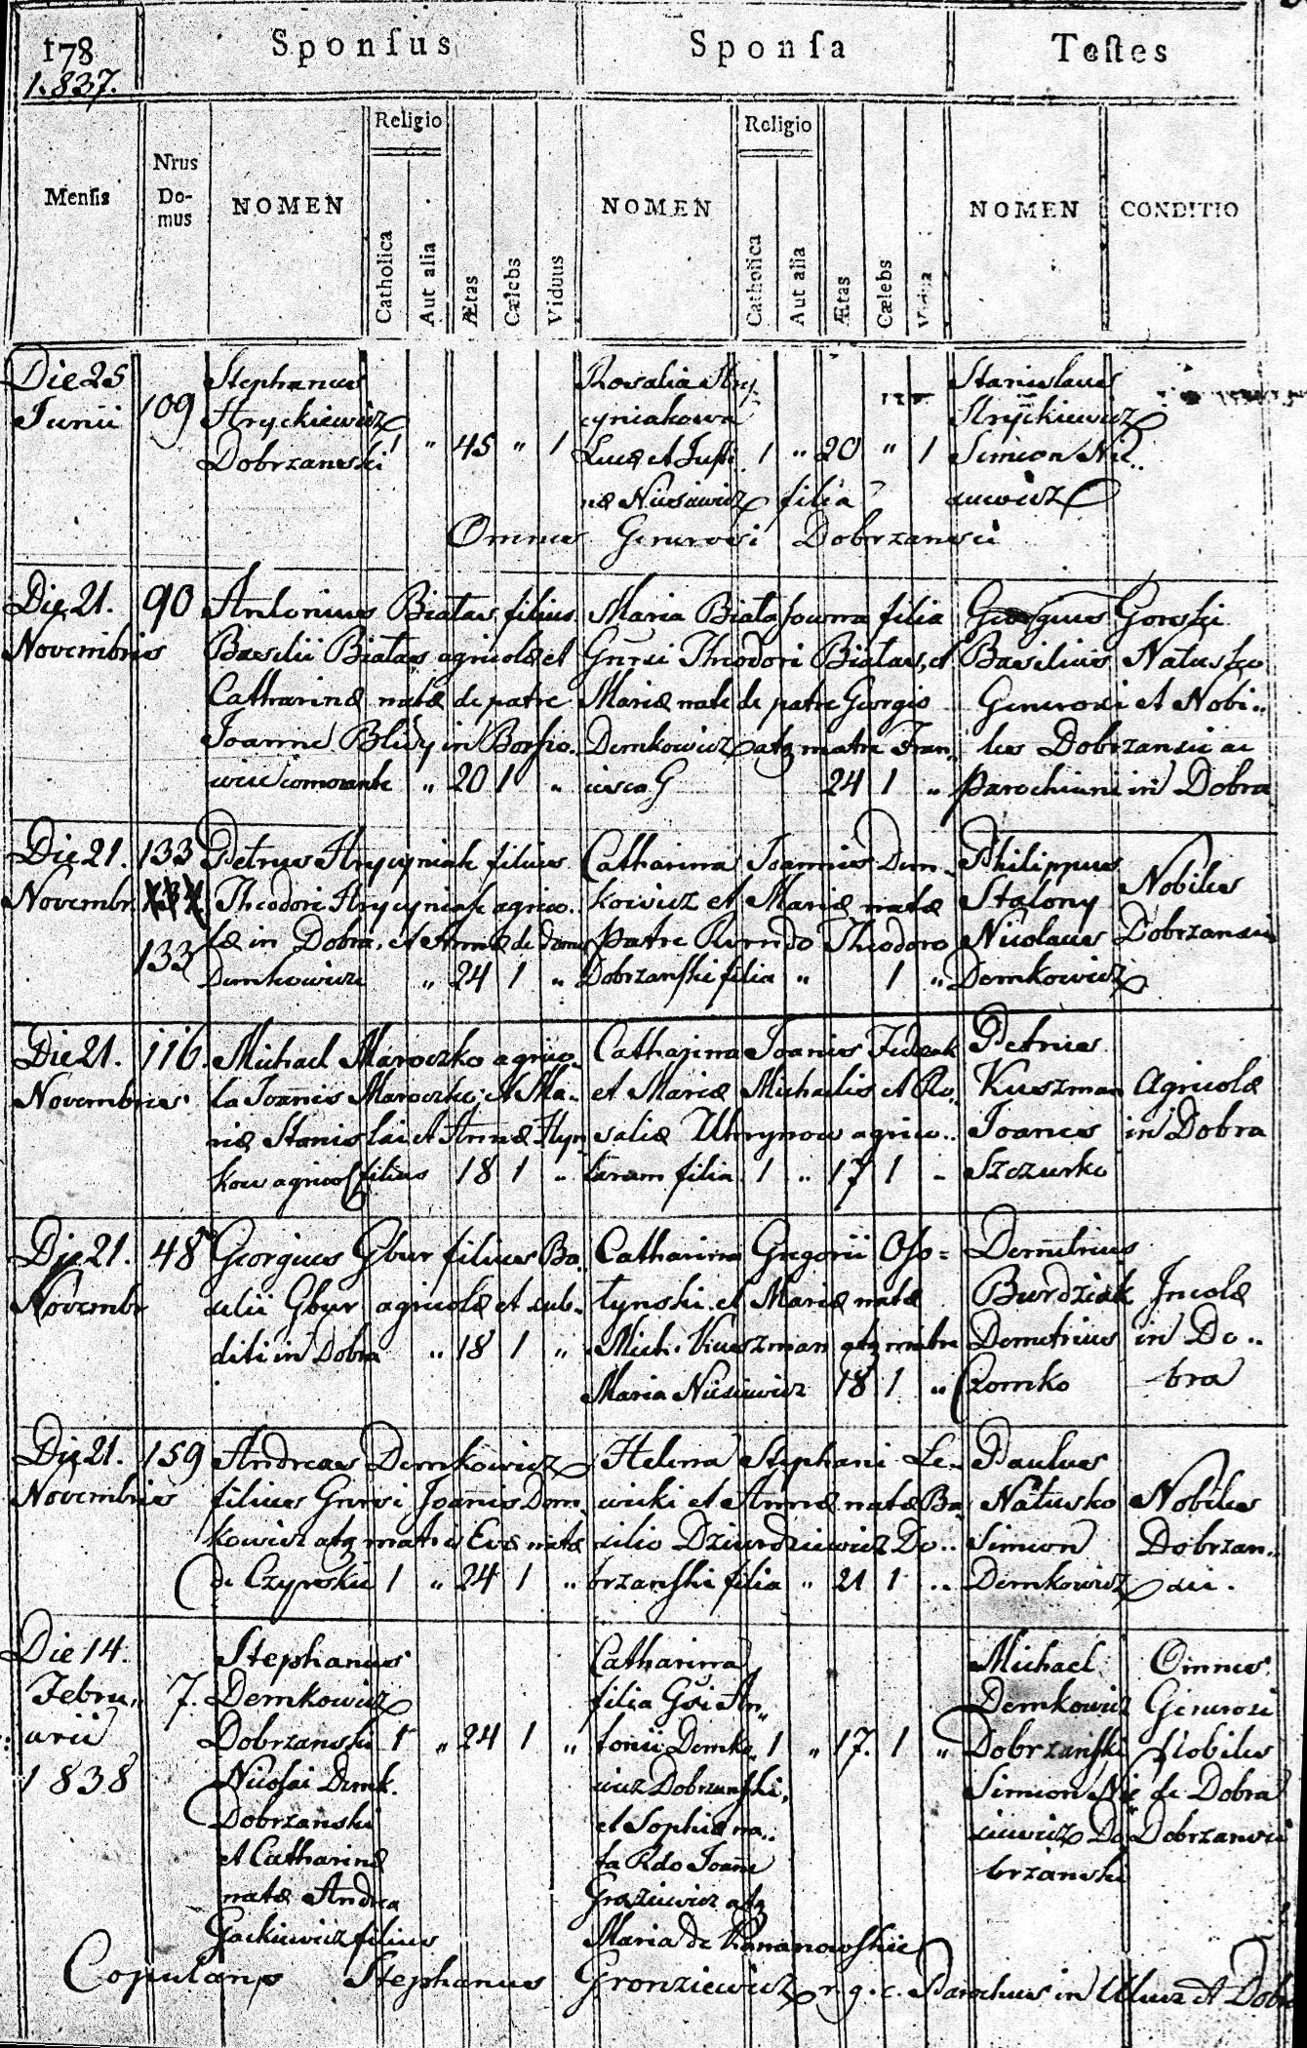 178
1.837.
Sponsus
Sponsa
Testes
Mensis
Nrus Do-
mus
NOMEN
Religio
Catholica
Aut alia
Ætas
Cælebs
Viduus
NOMEN
Religio
Catholica
Aut alia
Ætas
Cælebs
Vidua
NOMEN
CONDITIO
Die 25
Junii
109
Stephanus
Hryckiewicz
Dobrzanski 1 " 45 " 1
Rosalia Hry
cyniakowa
Lucæ et Justi 1 " 20 " 1
næ Niesiewicz filia
Stanislaus
Hryckiewicz
Simion Nie..
siewicz
Omnes Generosi Dobrzansci
Die 21.
Novembris
90
Antonius Białas filius
Basilii Białas agricolæ et
Catharinæ natæ de patre
Joanne Blidy in
comorante " 20 1 "
Maria Białasowna filia
Gnrsi Theodori Białas, et
Mariæ nate de patre Georgio
Demkowicz atq matre Fran
cisca G 24 1 "
Georgius Gorski
Basilius Natusko
Generosi et Nobi..
les Dobrzansci ac
parochiani in Dobra
Die 21.
Novembr.
133
133
Petrus Hrycyniak filius
Theodori Hrycyniak agrico..
læ in Dobra, et Annæ de domo
Demkowicz " 24 1 "
Catharina Joannis Dem
kowicz et Mariæ natæ
patre Rvrndo Theodoro
Dobrzanski filia " 1 "
Philippus
Stalony
Nicolaus
Demkowicz
Nobiles
Dobrzansci
Die 21.
Novembris
116.
Michael Maroczko agrico
la Joannis Maroczko, et Ma-
riæ Stanislai et Annæ Hyn
kow agricol filius 18 1 "
Catharina Joanis Fedzak
et Mariæ Michaelis et Ro..
saliæ Uhrynow agrico..
larum filia 1 " 17 1 "
Petrus
Kuszman
Joanes
Szczurko
Agricolæ
in Dobra
Die 21.
Novembr
48
Georgius Gbur filius Ba
silii Gbur agricolæ et sub-
diti in Dobra " 18 1 "
Catharina Gregorii Oso=
tynski et Mariæ natæ
Mich. Kuszman atq matre
Maria Niesiewicz 18 1 "
Demetrius
Burdziak
Demetrius
Romko
Incolæ
in Do..
bra
Die 21.
Novembris
159
Andreas Demkowicz
filius Gnrsi Joanis Dem
kowicz atq matris Evæ natæ
de Czyrskie 1 " 24 1 "
Helena Stephani Le-
wicki et Annæ natæ Ba
silio Dziurdziewicz Do..
brzanski filia " 21 1 "
Paulus
Natusko
Simion
Demkowicz
Nobiles
Dobrzan..
sci.
Die 14.
Febru..
arii
1838
7.
Stephanus
Demkowicz
Dobrzanski 1 " 24 1 "
Nicolai Demk.
Dobrzanski
et Catharinæ
natæ Andrea
Gackiewicz filius
Catharina
filia Gsi An..
tonii Demko.. 1 " 17. 1 "
wicz Dobrzanski,
et Sophiæ na..
ta Rdo Joane
Graziewicz atq
Maria de
Michael
Demkowicz
Dobrzanski
Simion Nie
siewicz Do
brzanski
Omnes
Generosi
Nobiles
de Dobra
Dobrzansci
Copulans Stephanus Gronziewicz r. g. c. Parochus in Ulucz et Dobra